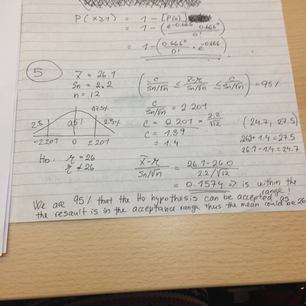 P(x≥1) = 1 - [P(0)]
= 1 - (e^-0.666 · 0.666^0 / 0!)
= 1 - (0.666^0 / 0! · e^-0.666)
5
x̄ = 26.1
Sn = 2.2
n = 12
( -c/Sn/√n ≤ x̄-μ/Sn/√n ≤ c/Sn/√n ) = 95%
c/Sn/√n = 2.201
c = 2.201 = 2.2/√12
c = 1.39
= 1.4
(24.7, 27.5)
26.1+1.4 = 27.5
26.1-1.4 = 24.7
2.5% 95% 2.5%
-2.201 0 2.201
Ho: μ = 26
μ ≠ 26
x̄-μ/Sn/√n = 26.1-26.0/2.2/√12
= 0.1574 ⇒ is within the range!
We are 95% that the Ho hypothesis can be accepted as
the resault is in the acceptance range thus the mean could be 26